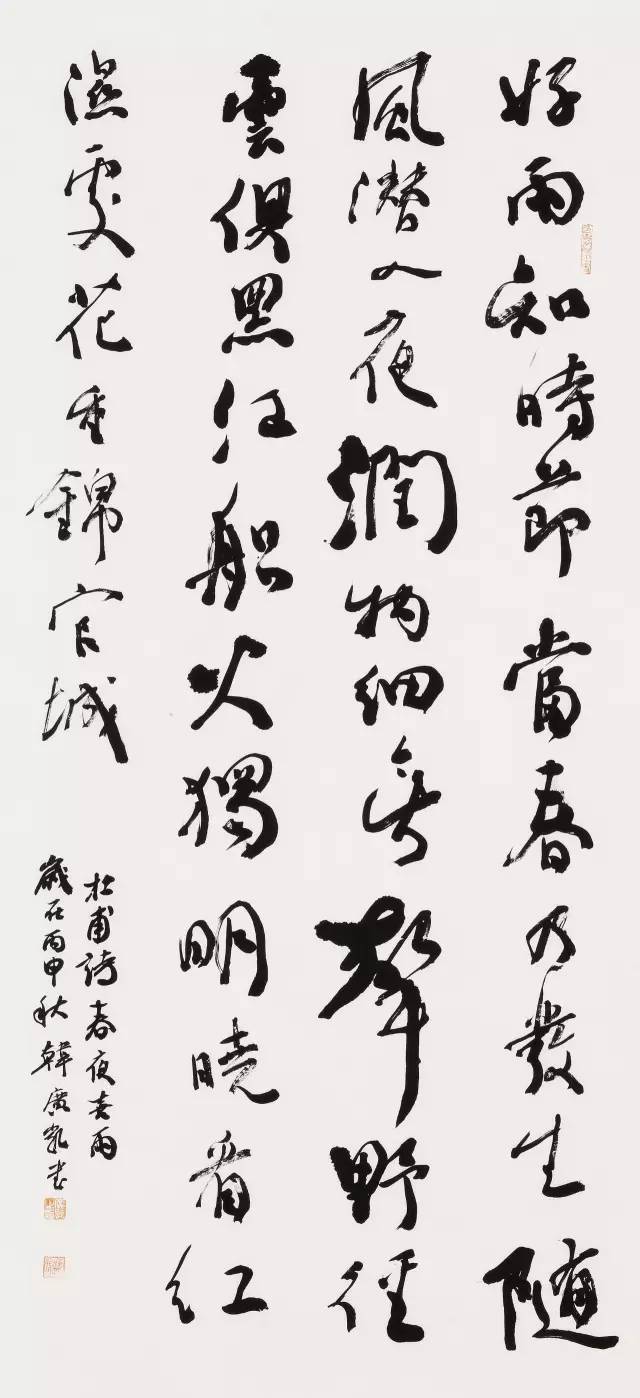 好雨知時節當春乃發生隨
風潛入夜潤物細無聲野徑
雲俱黑江船火獨明曉看紅
濕處花重錦官城
杜甫詩春夜喜雨
歲在丙申秋韓廣凱書